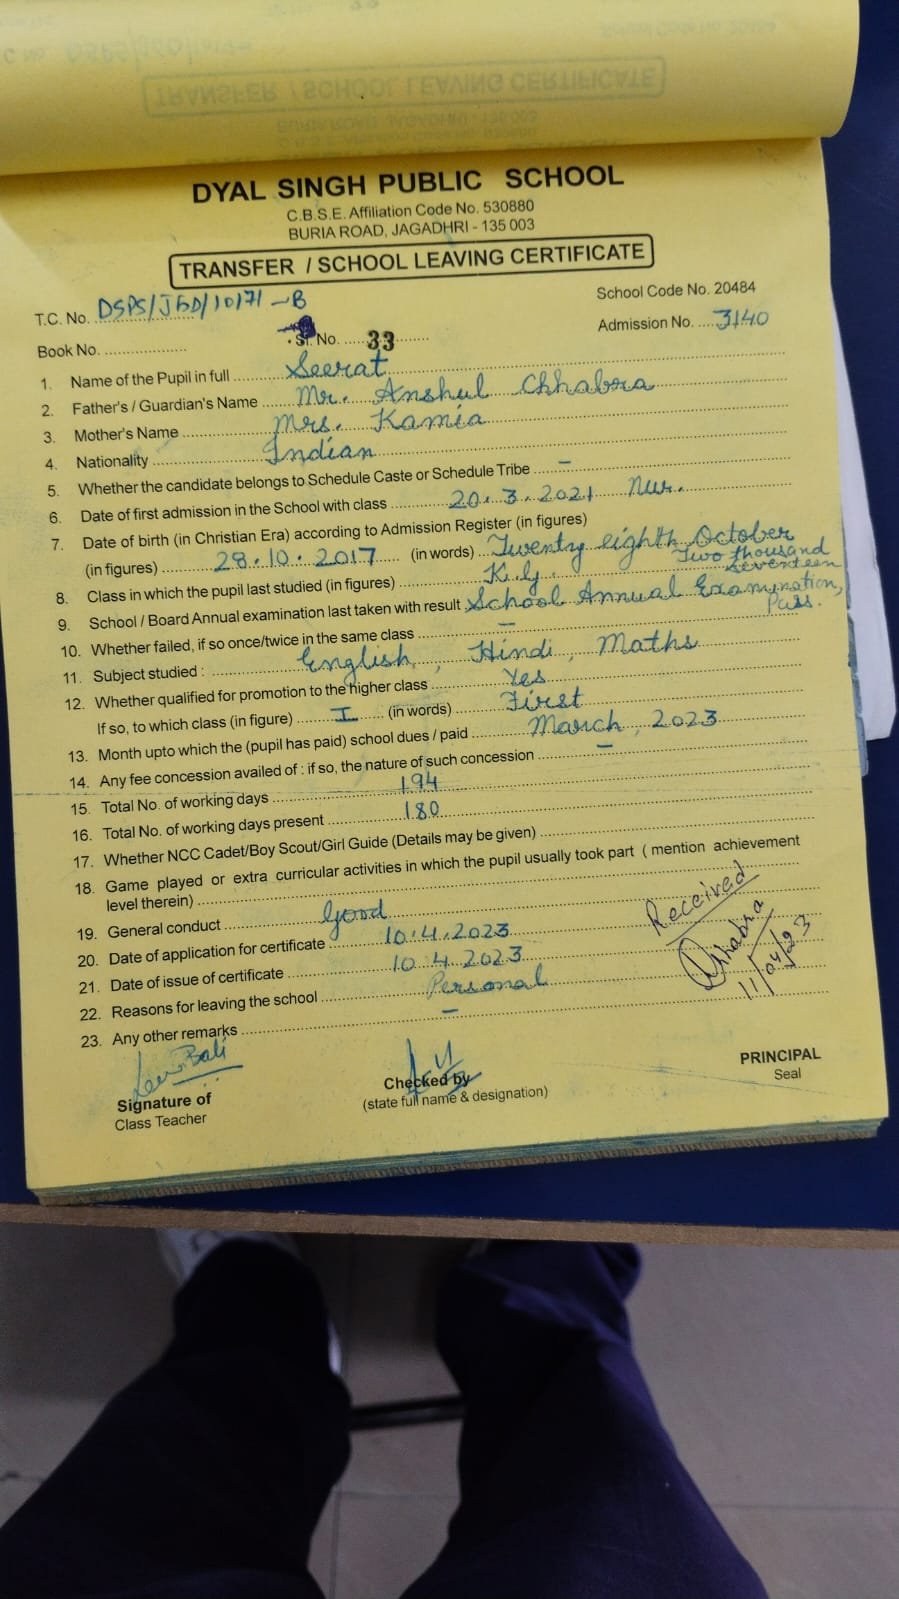 DYAL SINGH PUBLIC SCHOOL
C.B.S.E. Affiliation Code No. 530880
BURIA ROAD, JAGADHRI - 135 003
TRANSFER / SCHOOL LEAVING CERTIFICATE
School Code No. 20484
T.C. No. DSPS/JGD/10171-B
Admission No. 3140
Book No. Sl. No. 33
1. Name of the Pupil in full Seerat
2. Father's / Guardian's Name Mr. Anshul Chhabra
3. Mother's Name Mrs. Kamia
4. Nationality Indian
5. Whether the candidate belongs to Schedule Caste or Schedule Tribe –
6. Date of first admission in the School with class 20.3.2021 Nur.
7. Date of birth (in Christian Era) according to Admission Register (in figures)
(in figures) 28.10.2017 (in words) Twenty eighth October
Two thousand
seventeen
8. Class in which the pupil last studied (in figures) K.g.
9. School / Board Annual examination last taken with result School Annual Examination,
Pass.
10. Whether failed, if so once/twice in the same class –
11. Subject studied : English, Hindi, Maths
12. Whether qualified for promotion to the higher class Yes
If so, to which class (in figure) I (in words) First
13. Month upto which the (pupil has paid) school dues / paid March, 2023
14. Any fee concession availed of : if so, the nature of such concession –
15. Total No. of working days 194
16. Total No. of working days present 180
17. Whether NCC Cadet/Boy Scout/Girl Guide (Details may be given)
18. Game played or extra curricular activities in which the pupil usually took part ( mention achievement
level therein)
19. General conduct Good
20. Date of application for certificate 10.4.2023
21. Date of issue of certificate 10.4.2023
22. Reasons for leaving the school Personal
23. Any other remarks –
Received
Chhabra
11/04/23
Signature of
Class Teacher
Checked by
(state full name & designation)
PRINCIPAL
Seal